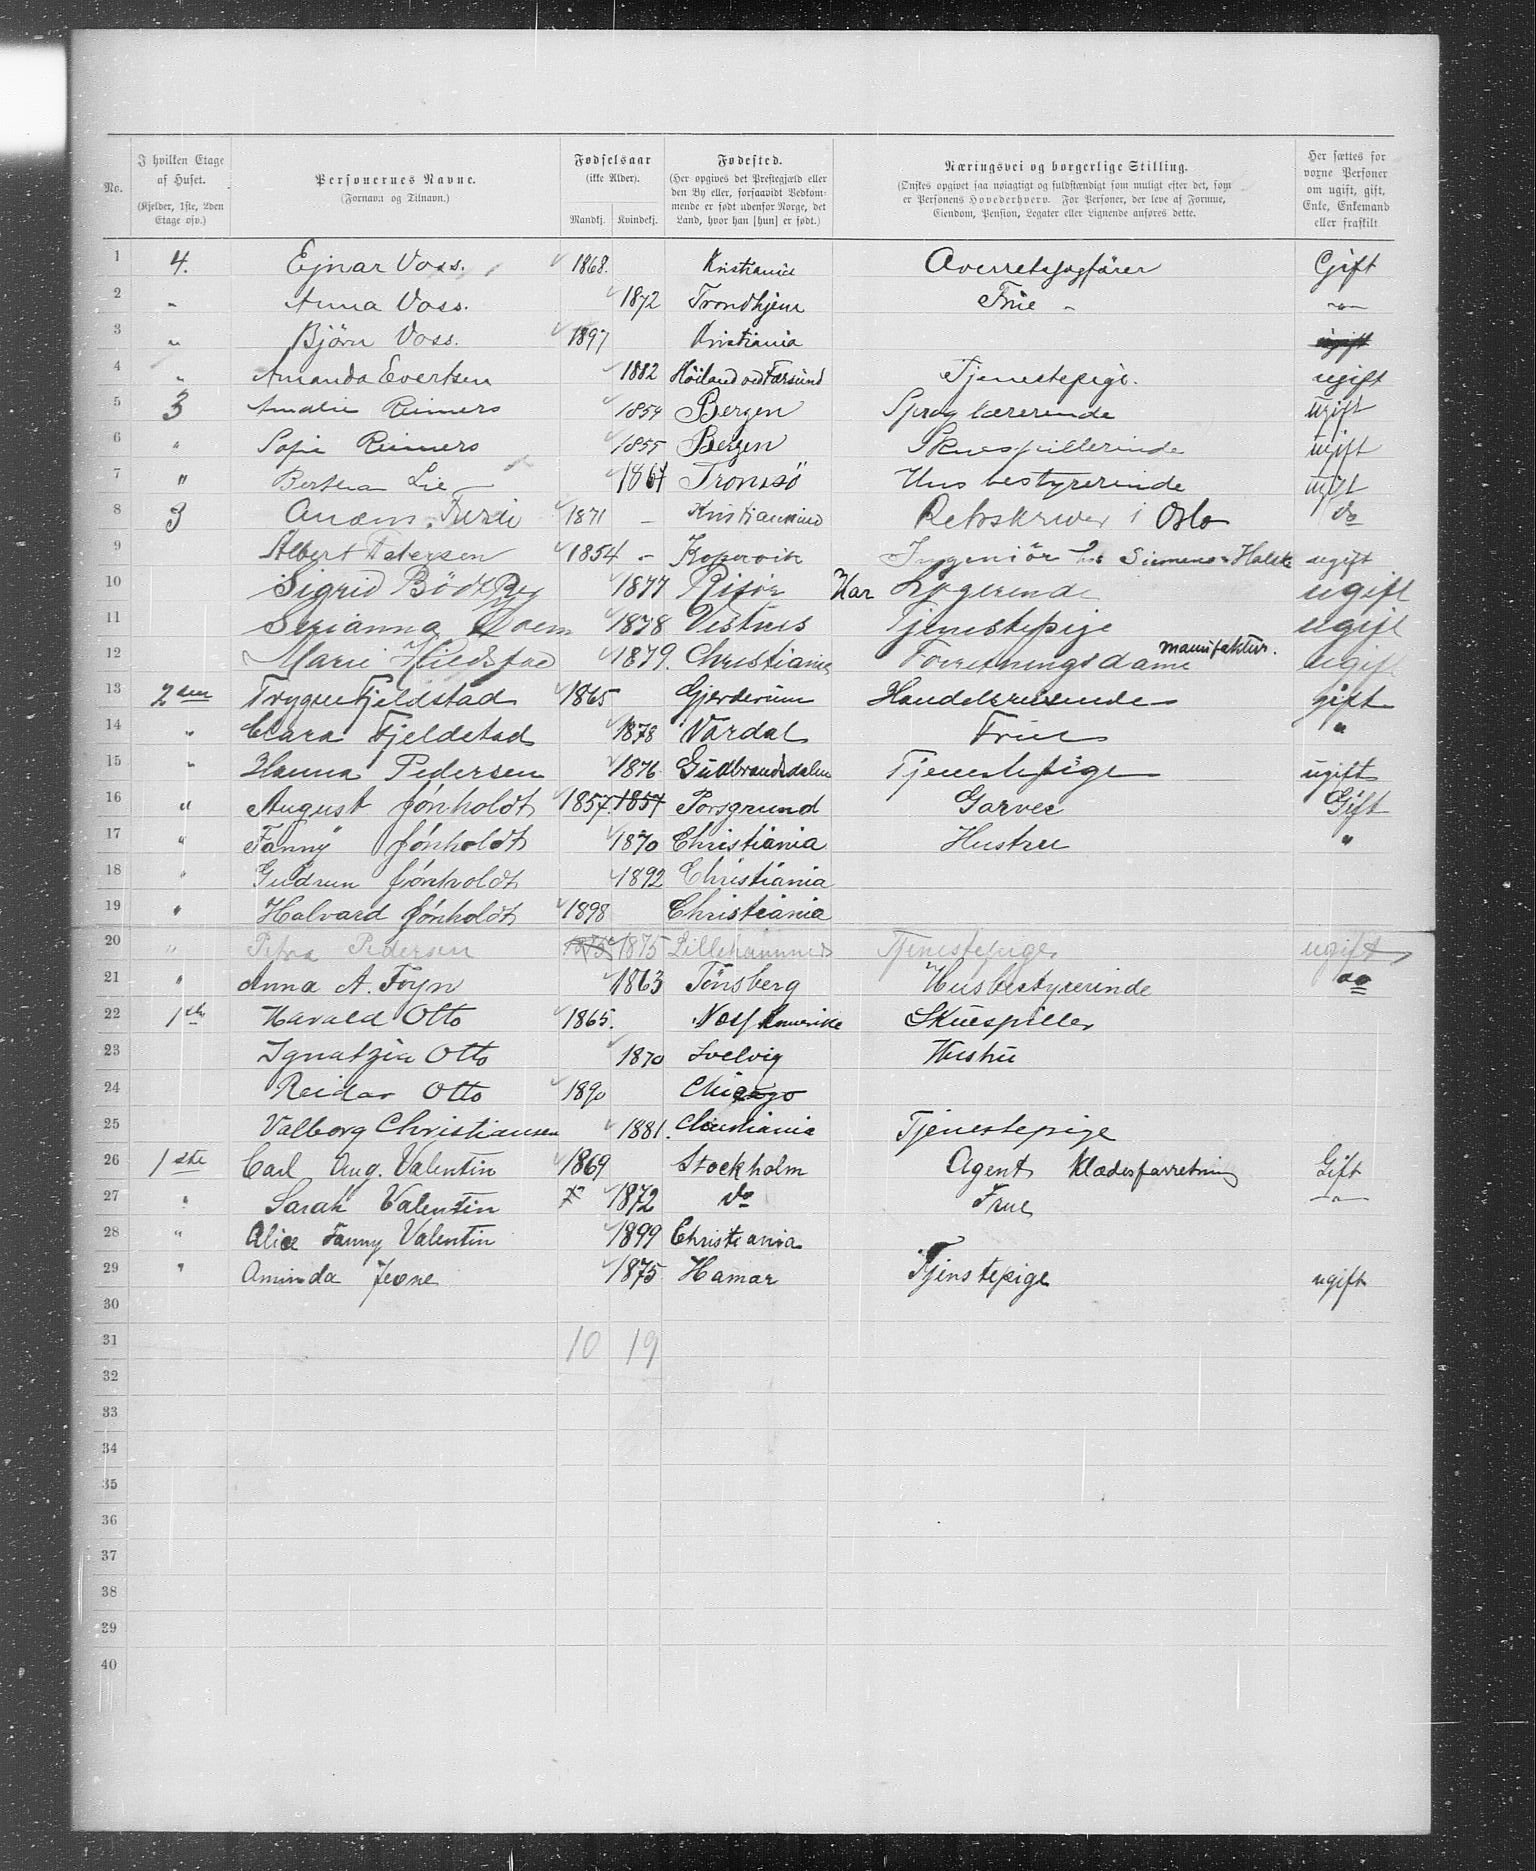 No.	I hvilken Etage af Huset. (Kjelder, 1ste, 2den Etage osv.)	Personernes Navne. (Fornavn og Tilnavn.)	Fødselsaar (ikke Alder). Mandkj. Kvindekj.	Fødested. (Her opgives det Prestegjæld eller den By eller, forsaavidt Vedkommende er født udenfor Norge, det Land, hvor han [hun] er født.)	Næringsvei og borgerlige Stilling. (Ønskes opgivet saa nøiagtigt og fuldstændigt som muligt efter det, som er Personens Hovederhverv. For Personer, der leve af Formue, Eiendom, Pension, Legater eller Lignende anføres dette.	Her sættes for voxne Personer om ugift, gift, Enke, Enkemand eller fraskilt
1 4. Ejnar Voss. 1868. Kristiania Overretssagfører Gift
2 " Anna Voss. 1872 Trondhjem Frue - -"-
3 " Bjørn Voss. 1897 Kristiania ugift
4 " Amanda Evertsen 1882 Høiland ved Farsund Tjenestepige. ugift
5 3 Amalie Reimers 1854 Bergen Sproglærerinde ugift
6 " Sofie Reimers 1855 Bergen Skuespillerinde ugift
7 " Berthea Lie 1867 Tromsö Husbestyrerinde ugift
8 3 1871 - Kristiansund Retsskriver i Oslo do
9 Albert Petersen 1854 - Kopervik Ingeniör hos Siemens Halske ugift
10 Sigrid Bödt 1877 Risör Har Logerende ugift
11 Serianna 1878 Vestnes Tjenestepige ugift
12 Marie 1879. Christiania Forretningsdame manufaktur. ugift
13 2den Trygve Fjeldstad 1865 Gjerderum Handelsreisende gift
14 " Clara Fjeldstad 1878 Vardal Frue "
15 " Hanna Pedersen 1876 Gudbrandsdalen Tjenestepige ugift
16 " August Jónholdt 1857. 1857 Porsgrund Garver Gift
17 " Fanny Jónholdt 1870 Christiania Hustru "
18 " Gudrun Jónholdt 1892 Christiania
19 " Halvard Jónholdt 1898 Christiania
20 " Petra Pedersen 1875 1875 Lillehammer Tjenestepige ugift
21 " Anna A. Foyn 1863 Tönsberg Husbestyrerinde do
22 1ste Harald Otto 1865. Skuespiller
23 Ignatzia Otto 1870 Svelvig Hustru
24 Reidar Otto 1890 Chicago
25 Valborg Christiansen 1881. Christiania Tjenestepige
26 1ste Carl Aug. Valentin 1869 Stockholm Agent Klædesforretning Gift
27 " Sarah Valentin x 1872 do Frue -"-
28 " Alice Fanny Valentin 1899 Christiania
29 " Aminda 1875 Hamar Tjenstepige ugift
30
31 10 19
32
33
34
35
36
37
38
39
40